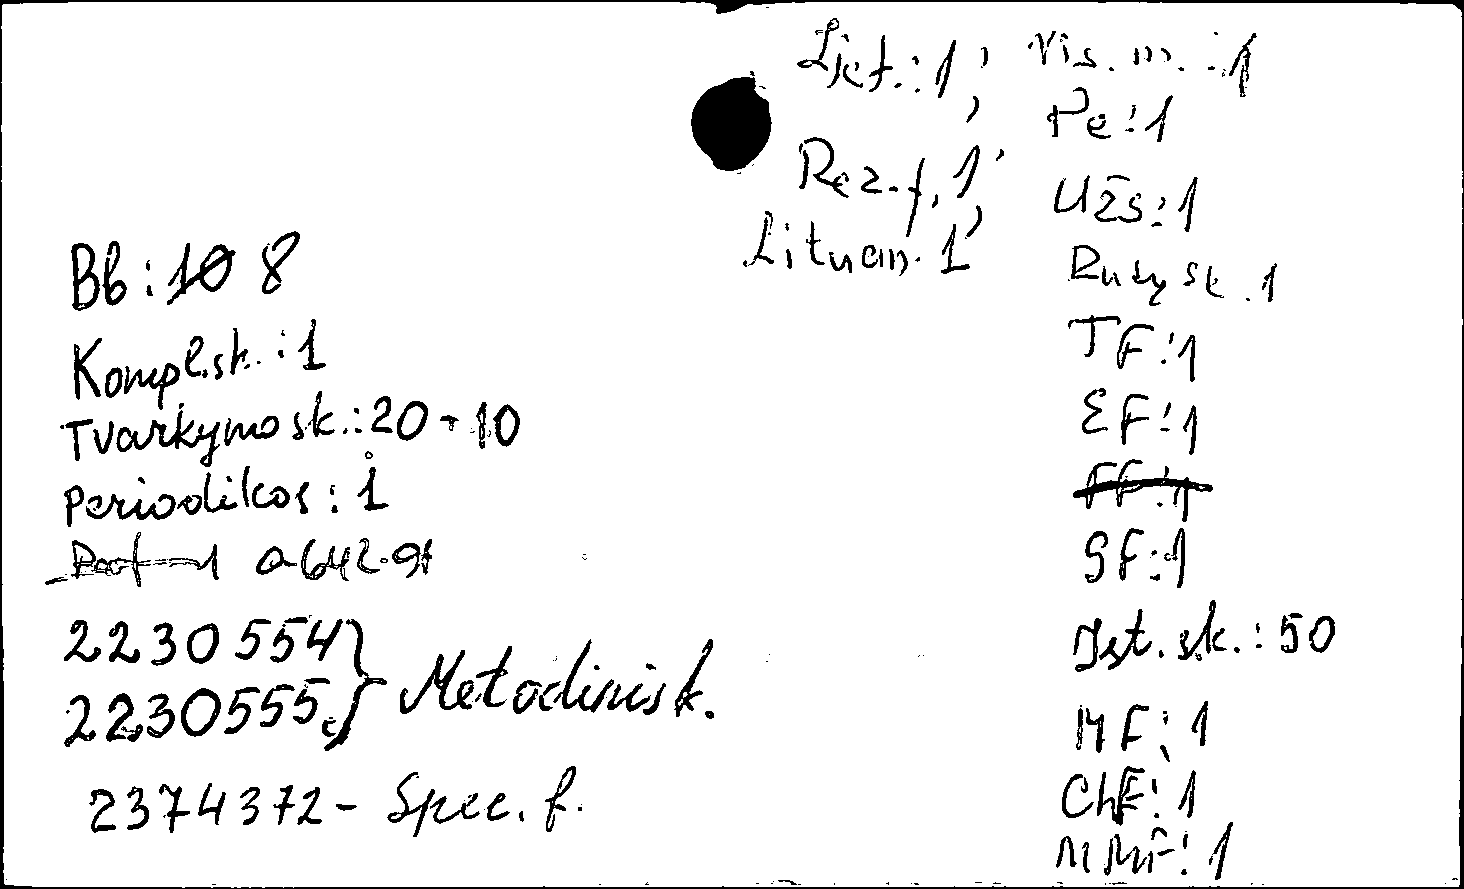 Bb: 10 8
Kompl.sk.: 1
Tvarkymo sk.: 20 + 10
Periodikos: 1
a642.91
2230554
2230555 } Metodinis k.
2374372 - Spec. f.
Liet.: 1,
Rez.f. 1,
Lituan. 1
Vis. m.: 1
Pe: 1
Užs: 1
Rusų sk. 1
TF: 1
EF: 1
FF: 1
GF: 1
Ist. sk.: 50
MF: 1
ChF: 1
MMF: 1